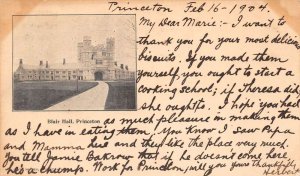 Princeton Feb 16-1904.
My dear Marie:- I want to
thank you for your most delicious
biscuits. If you made them
yourself, you ought to start a
cooking school; if Theresa did,
she oughtto. I hope you had
Blair Hall, Princeton.
as much pleasure in making them
as I have in eating them. You know I saw Papa
and Mamma here and they like the place very much.
You tell Jamie that if he doesn't come here
he's a chump. Work for Princeton, will you yours thankfully,
Herbert